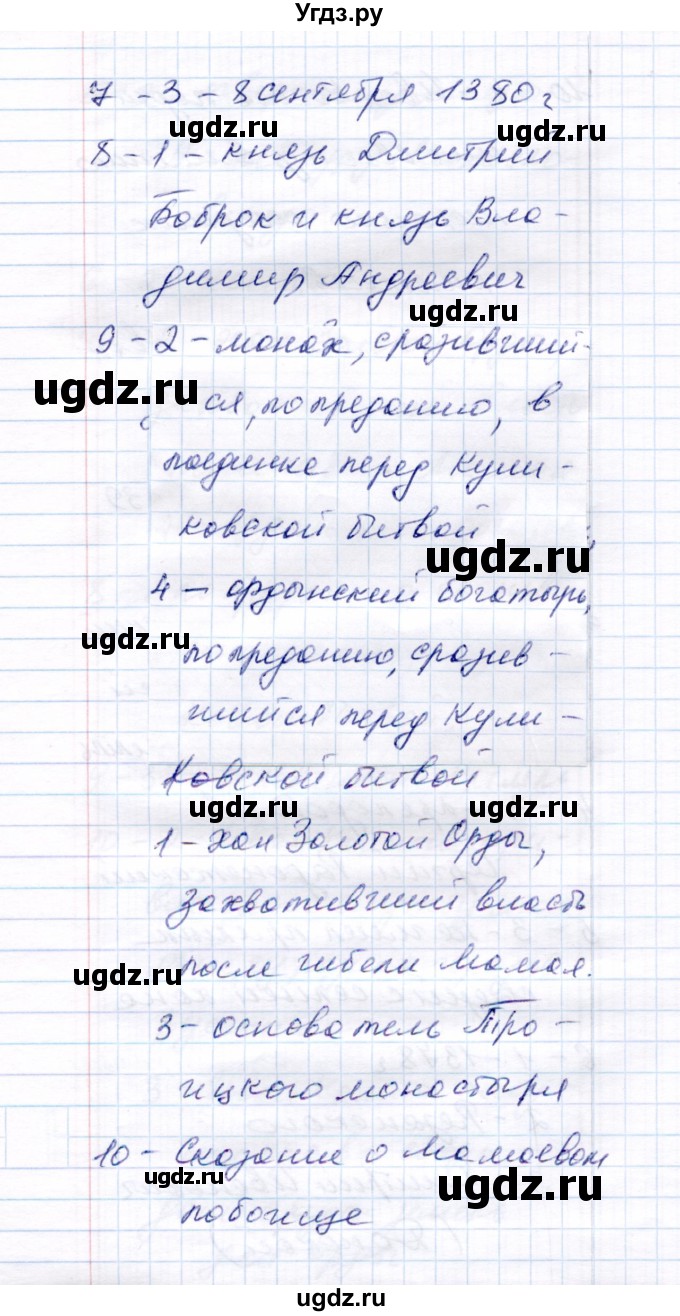 Угдз.ру
7 - 3 - 8 сентября 1380 г
ugdz.ru
8 - 1 - князь Дмитрий
Боброк и князь Вла -
димир Андреевич
ugdz.ru
9 - 2 - монах, сразивший-
ugdz.ru
ся, по преданию, в
поединке перед Кули -
ковской битвой
ugdz.ru
4 - ордынский богатырь,
ugdz.ru
по преданию, сразив -
шийся перед Кули -
ковской битвой
ugdz.ru ugdz.ru
1 - хан Золотой Орды,
захвативший власть
после гибели Мамая.
ugdz.ru
3 - основатель Тро -
ицкого монастыря
10 - Сказание о Мамаевом
ugdz.ru ugdz.ru
побоище
ugdz.ru